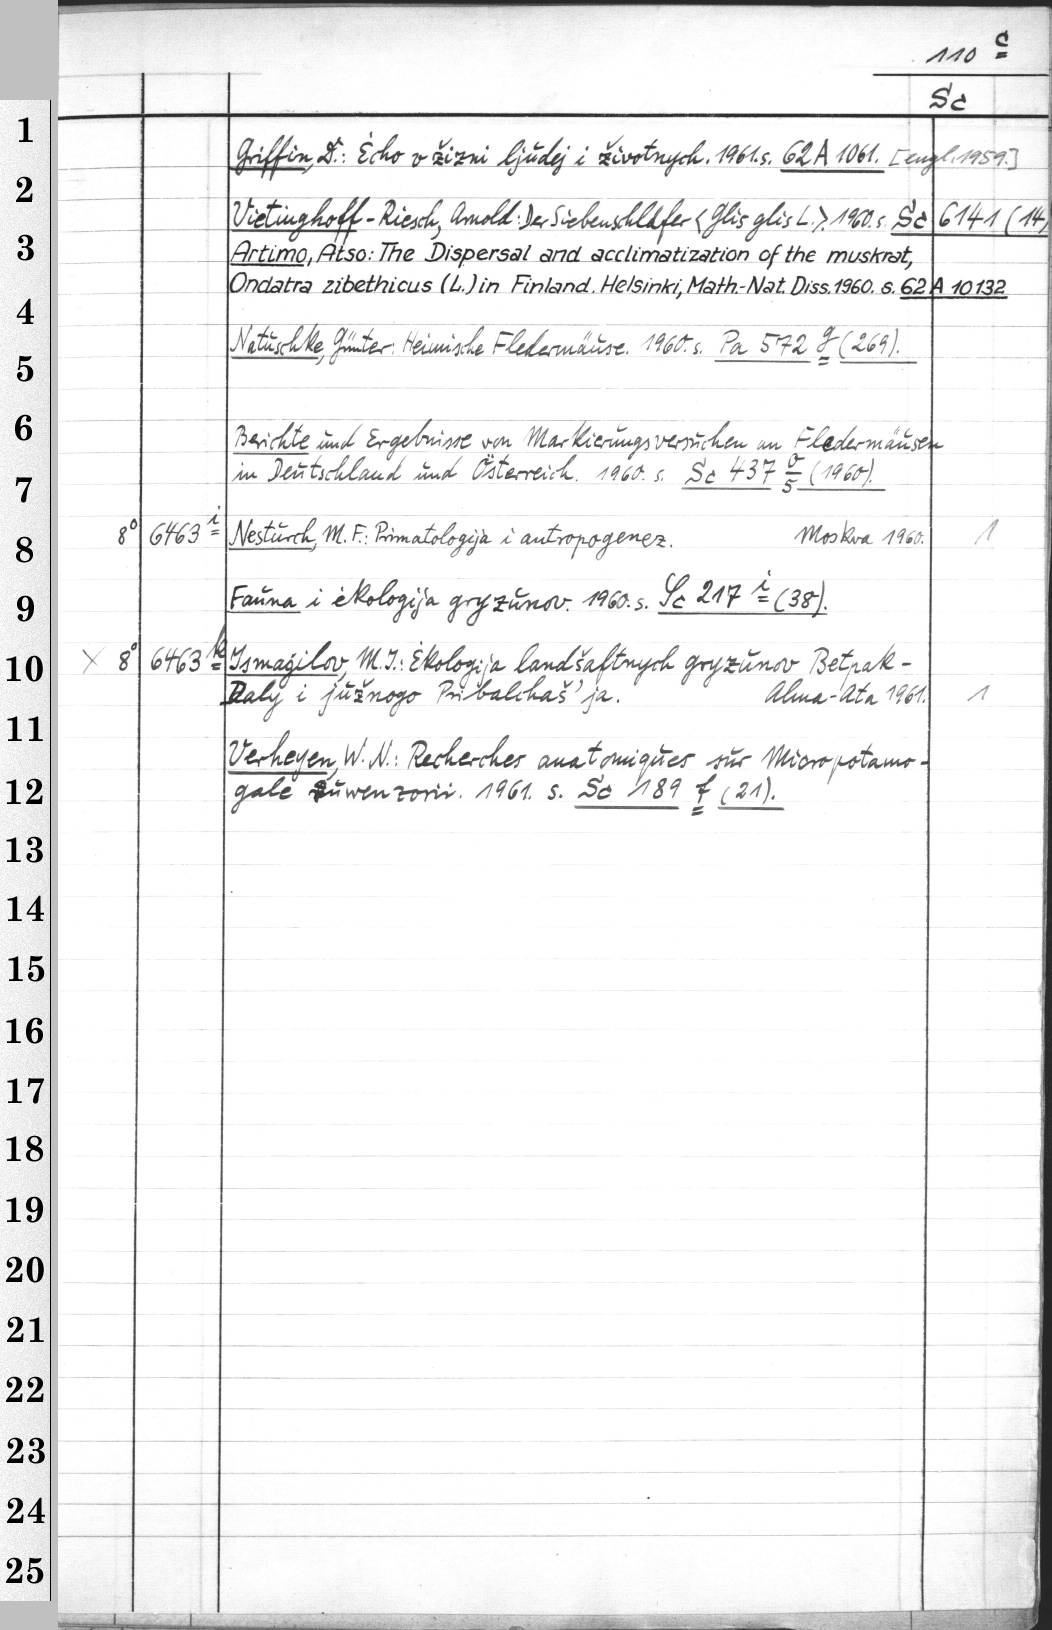 110 c
Sc
1
Griffin, D.: Ėcho v žizni ljudej i životnych. 1961. s. 62 A 1061. [engl. 1959.]
2
Vietinghoff-Riesch, Arnold: Der Siebenschläfer <Glis glis L.>. 1960. s. Sc 6141 (14)
3
Artimo, Atso: The Dispersal and acclimatization of the muskrat,
Ondatra zibethicus (L.) in Finland. Helsinki, Math.-Nat. Diss. 1960. s. 62 A 10132
4
Natuschke, Günter: Heimische Fledermäuse. 1960. s. Pa 572 g (269).
5
6
Berichte und Ergebnisse von Markierungsversuchen an Fledermäusen
in Deutschland und Österreich. 1960. s. Sc 437 o/5 (1960).
7
8° 6463 i Nesturch, M. F.: Primatologija i antropogenez. Moskva 1960. 1
8
Fauna i ėkologija gryzunov. 1960. s. Sc 217 i (38).
9
X 8° 6463 k Ismagilov, M. I.: Ėkologija landšaftnych gryzunov Betpak-
10
Daly i južnogo Pribalchaš'ja. Alma-Ata 1961. 1
11
Verheyen, W. N.: Recherches anatomiques sur Micropotamo-
12
gale ruwenzorii. 1961. s. Sc 189 f (21).
13
14
15
16
17
18
19
20
21
22
23
24
25